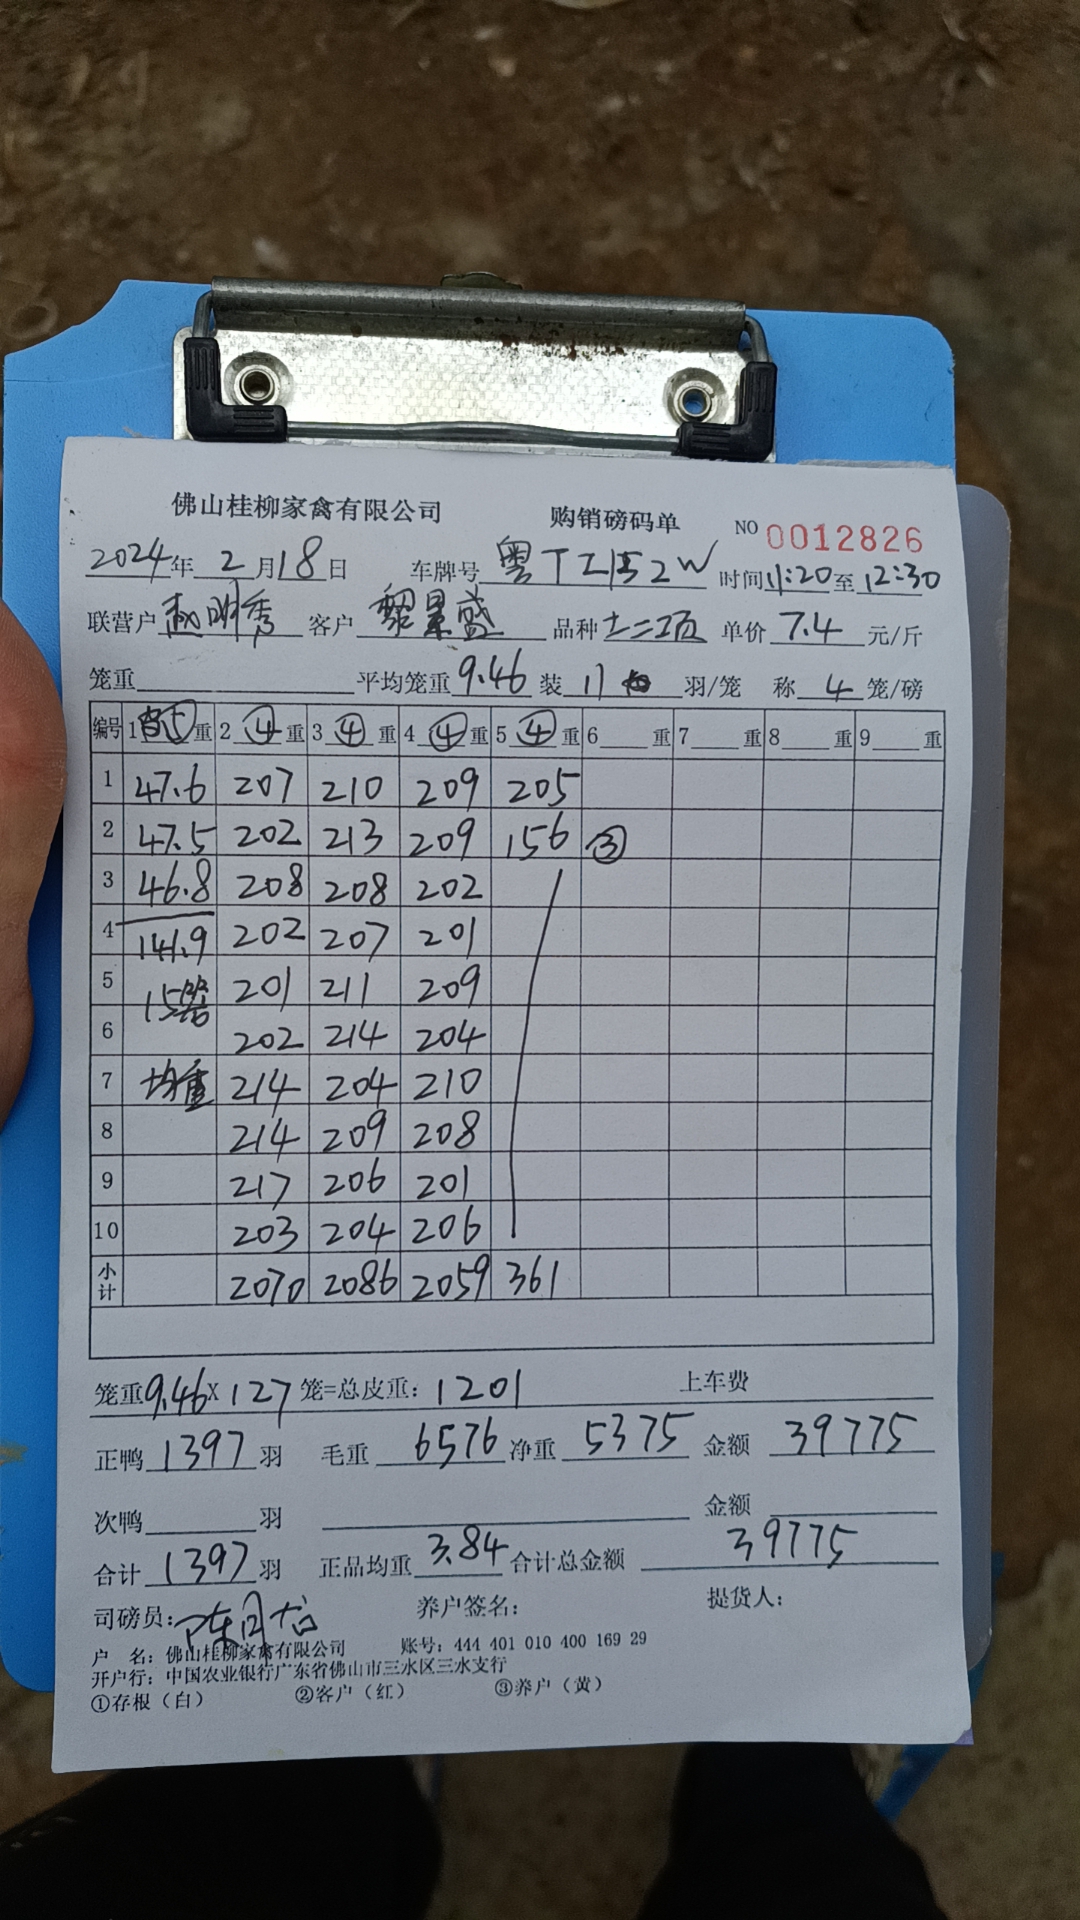 佛山桂柳家禽有限公司 购销磅码单 NO 0012826
2024年 2月18日 车牌号 粤TZ152W 时间11:20至12:30
联营户 赵明秀 客户 黎景盛 品种 土二项 单价 7.4 元/斤
笼重 平均笼重 9.46 装 11 羽/笼 称 4 笼/磅
编号 1 ⑤ 重 2 ④ 重 3 ④ 重 4 ④ 重 5 ④ 重 6 重 7 重 8 重 9 重
1 47.6 207 210 209 205
2 47.5 202 213 209 156 ③
3 46.8 208 208 202
4 141.9 202 207 201
5 15 201 211 209
6 202 214 204
7 均重 214 204 210
8 214 209 208
9 217 206 201
10 203 204 206
小计 2070 2086 2059 361
笼重9.46X 127 笼=总皮重: 1201 上车费
正鸭 1397 羽 毛重 6576 净重 5375 金额 39775
次鸭 羽 金额
合计 1397 羽 正品均重 3.84 合计总金额 39775
司磅员: 养户签名: 提货人:
户 名: 佛山桂柳家禽有限公司 账号: 444 401 010 400 169 29
开户行: 中国农业银行广东省佛山市三水区三水支行
①存根（白） ②客户（红） ③养户（黄）